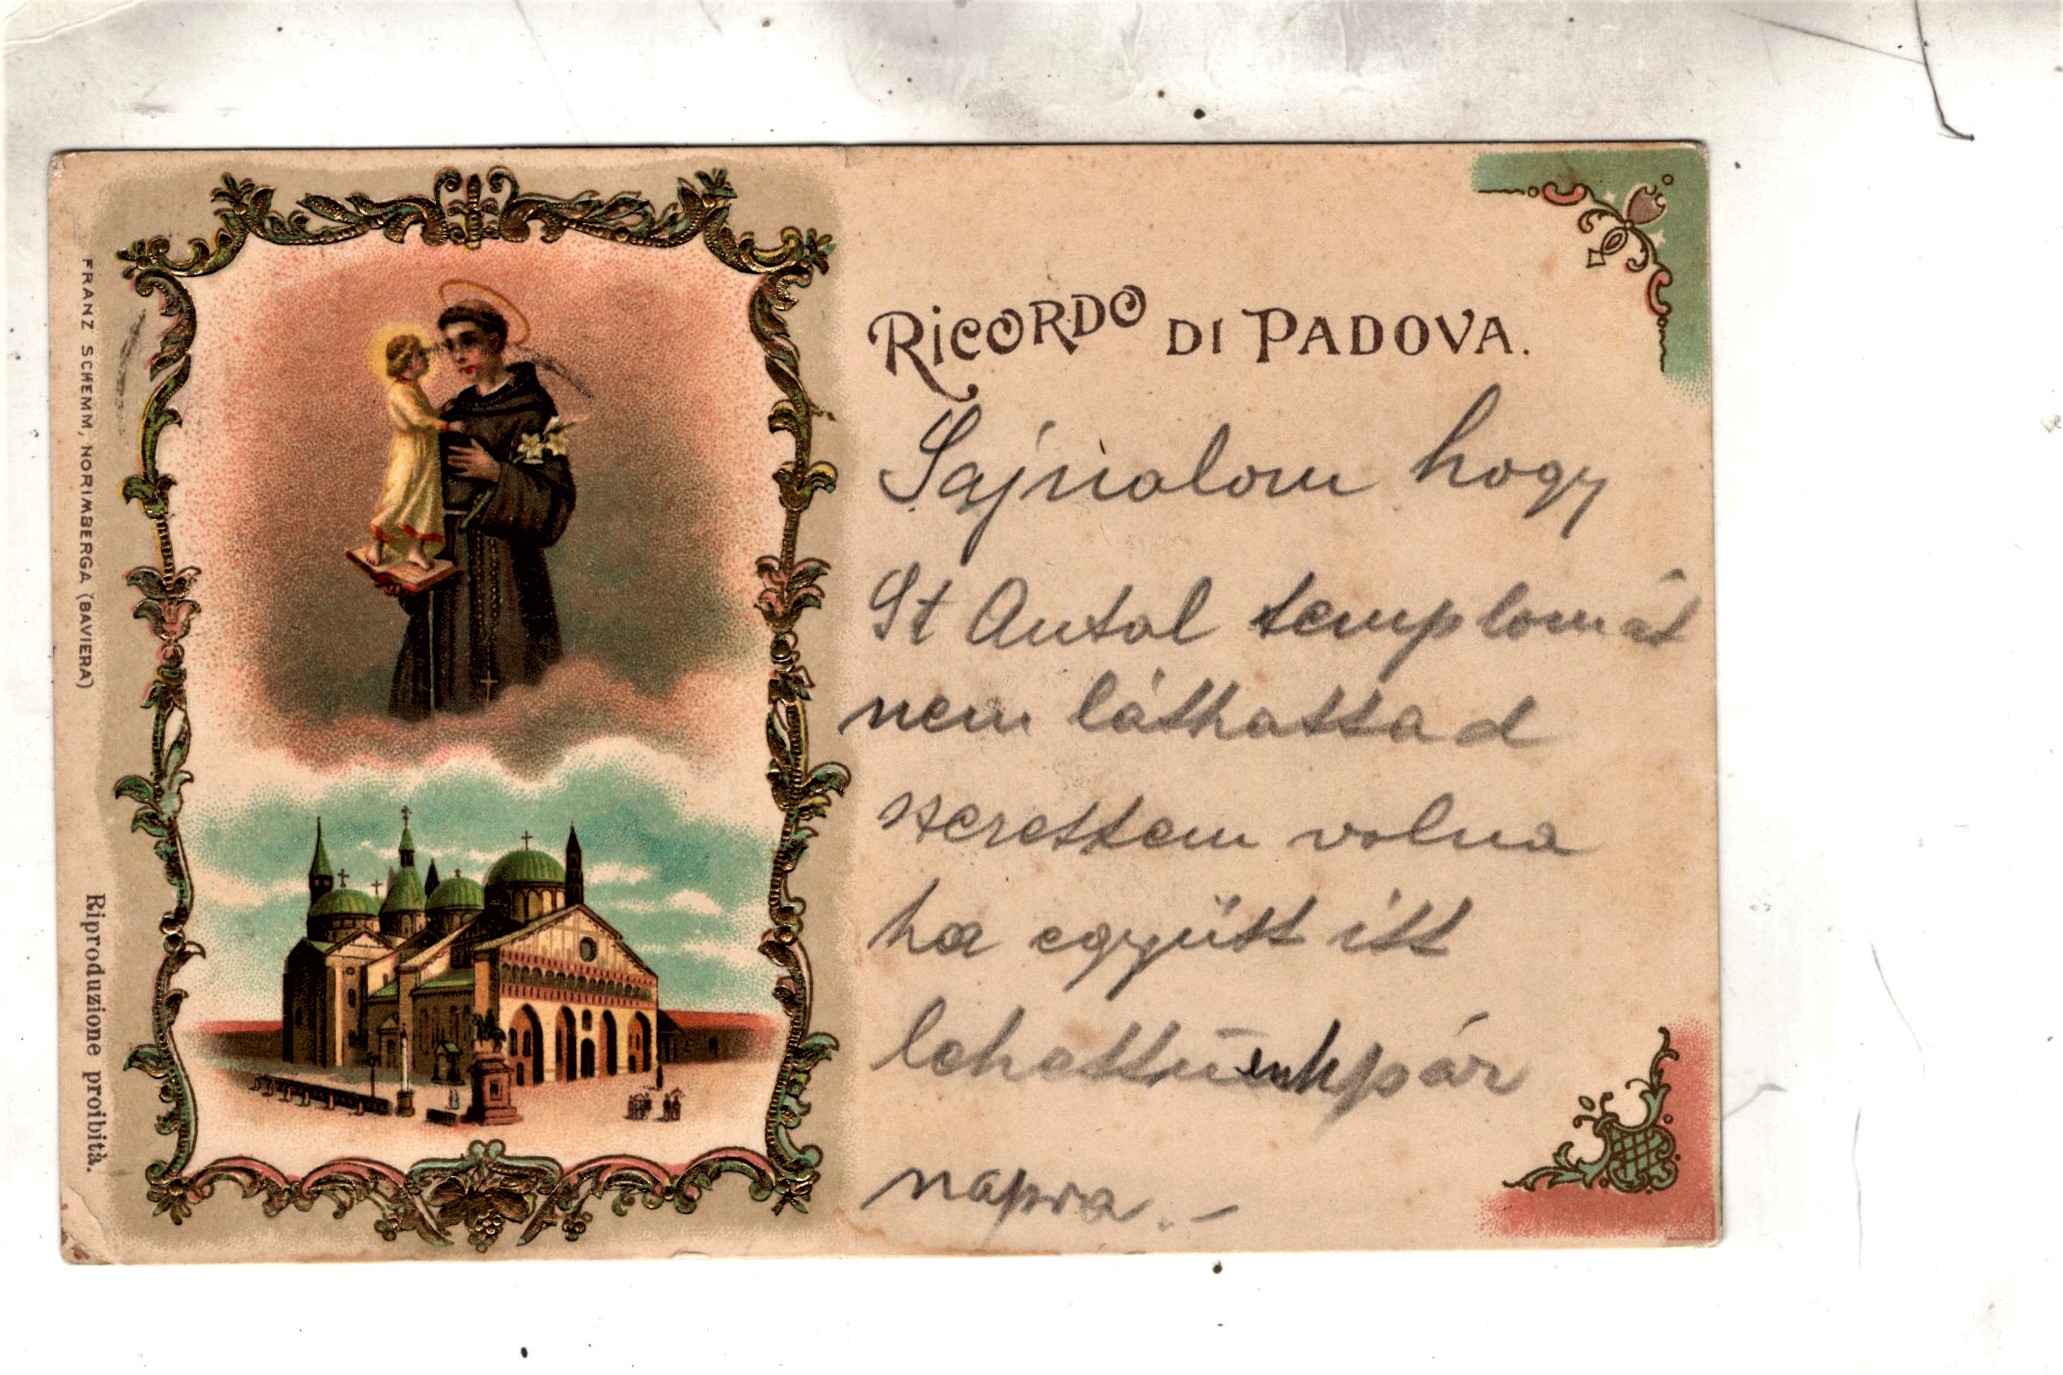 FRANZ SCHEMM, NORIMBERGA (BAVIERA)
Riproduzione proibita.
RICORDO DI PADOVA.
Sajnalom hogy
St Antal templomát
nem láthattad
szerettem volna
ha együtt itt
lehettünk pár
napra. –